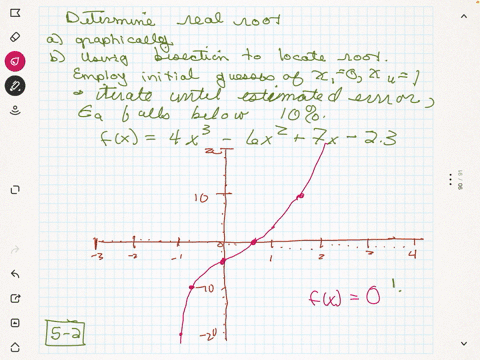 Determine real root
a) graphically
b) Using bisection to locate root.
Employ initial guesses of x₁=0, x u=1
& iterate until estimated error,
Ea falls below 10%.
f(x) = 4x³ - 6x² + 7x - 2.3
10
-3 -2 -1 0 1 2 3 4
-10
f(x) = 0 !
-20
5-2